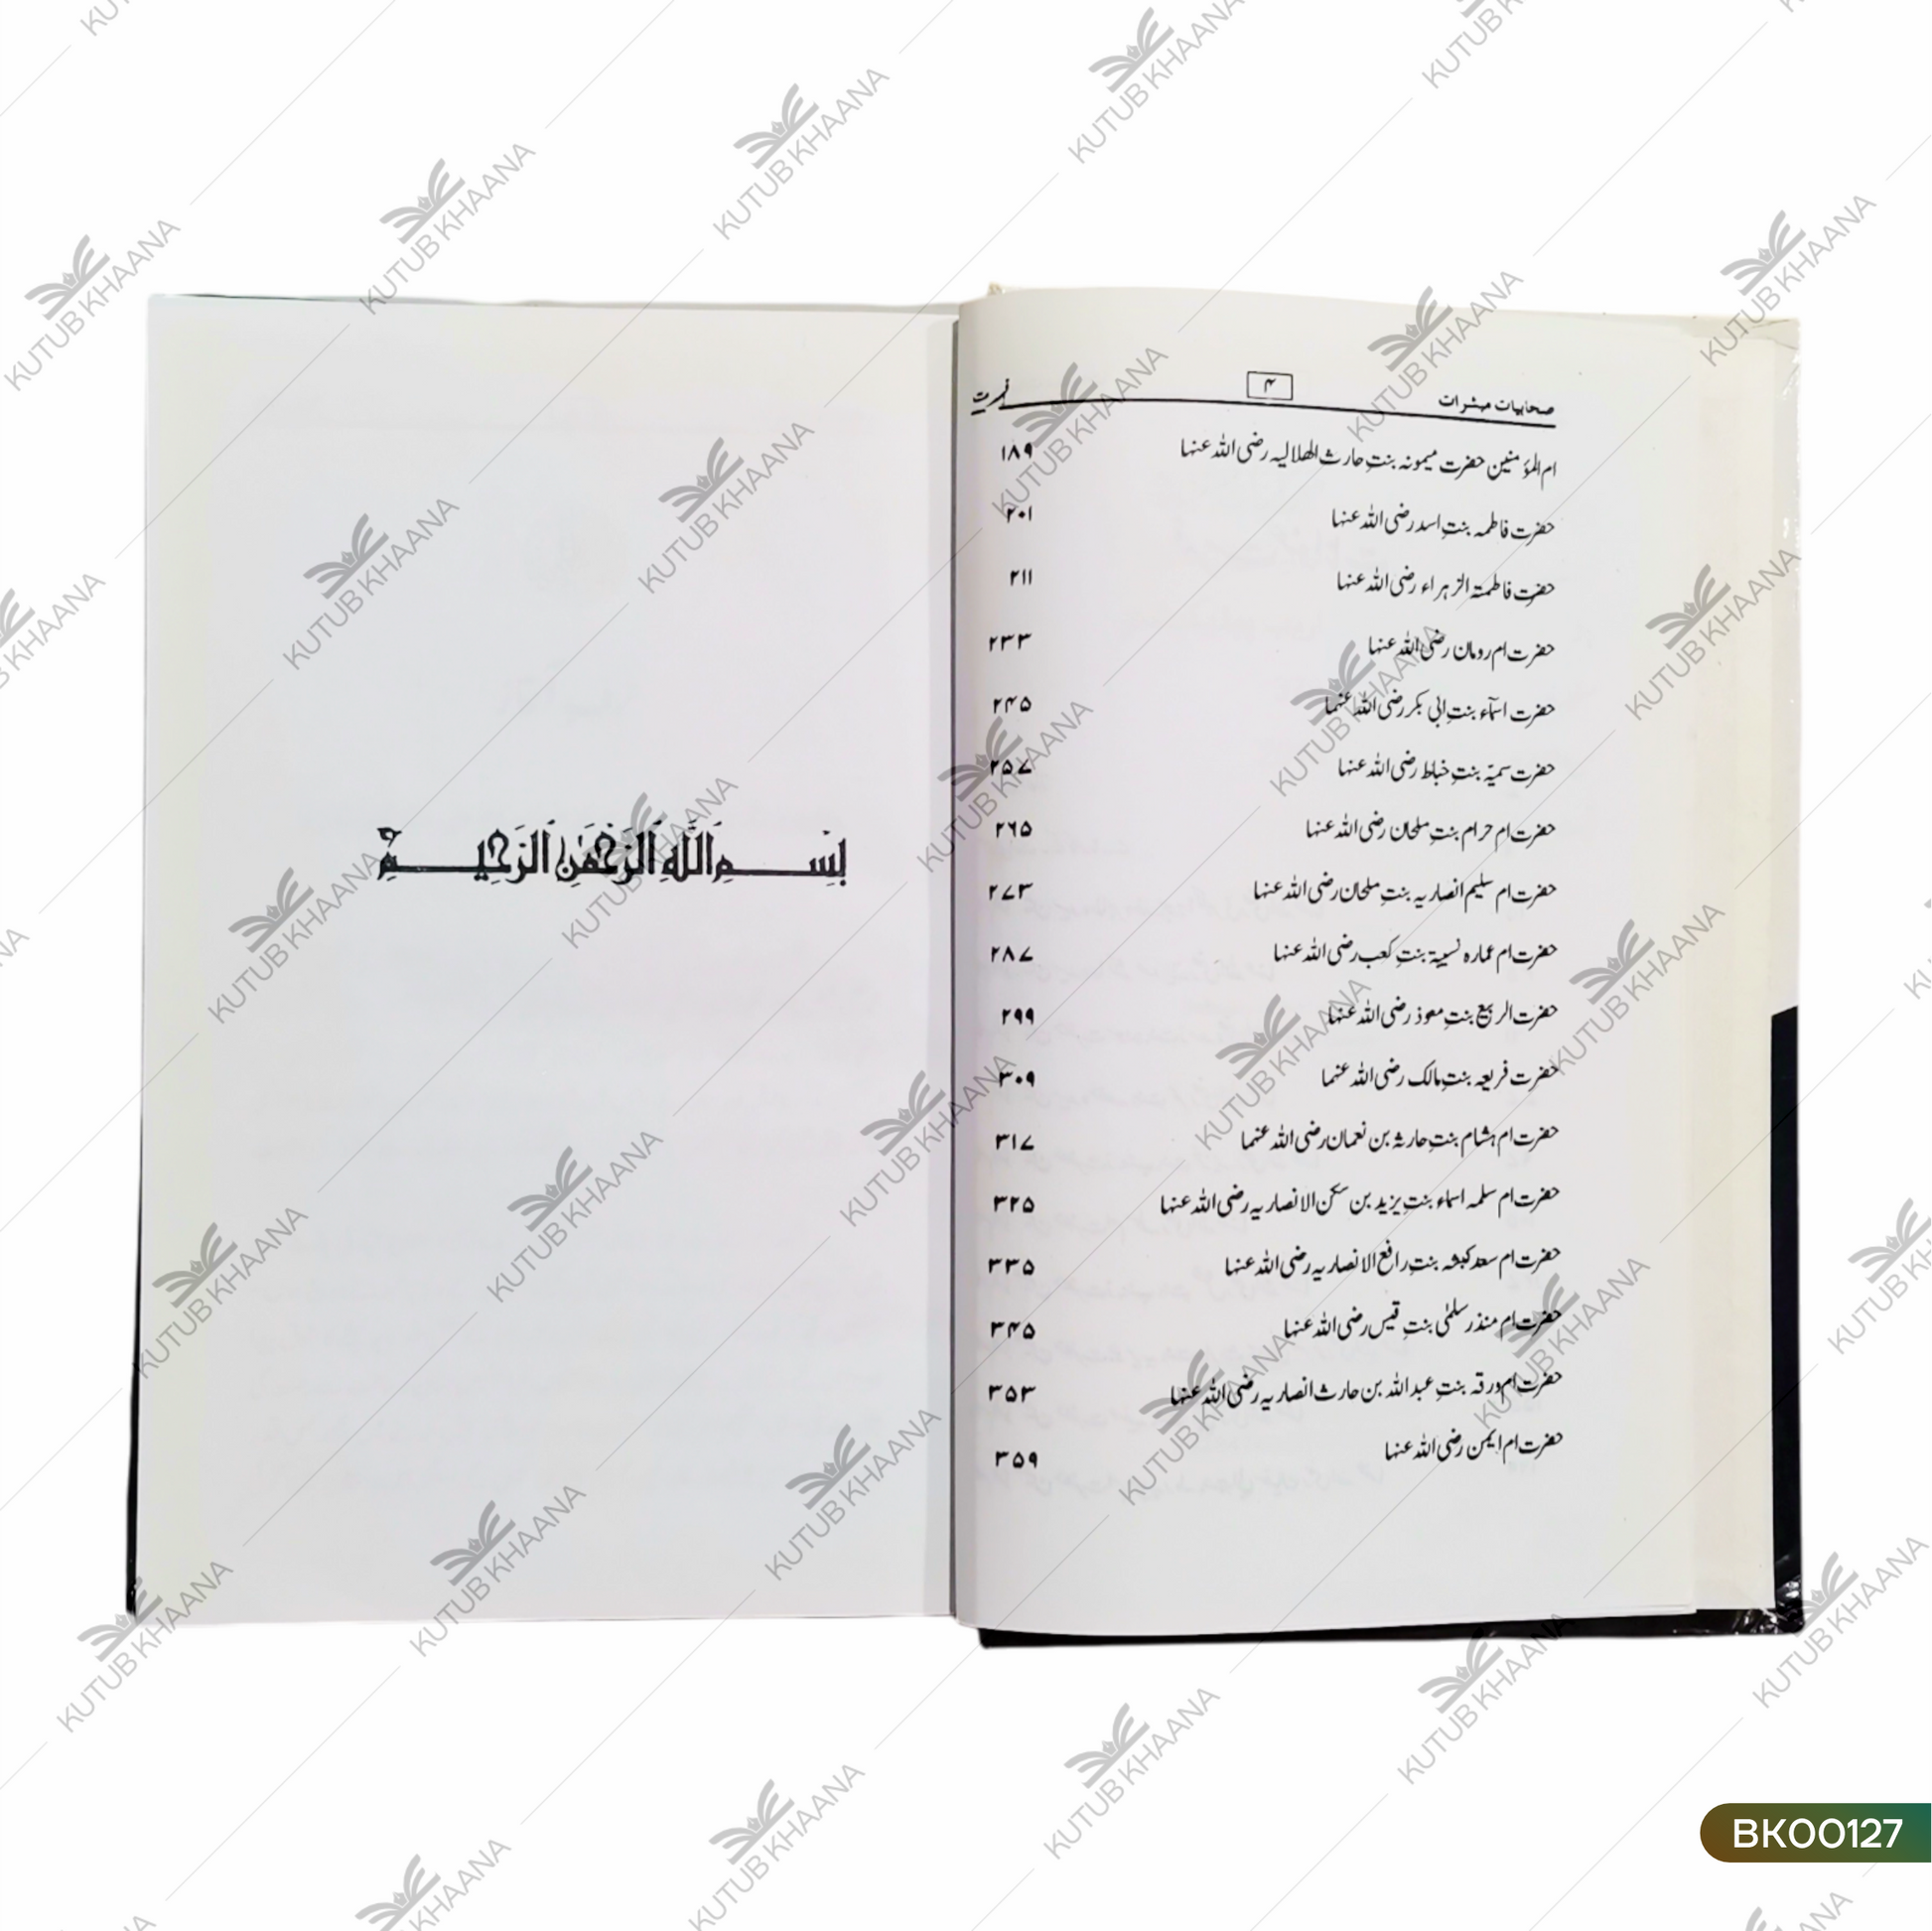 صحابیات مبشرات ۴ فہرست
ام المؤمنین حضرت میمونہ بنتِ حارث الھلالیہ رضی اللہ عنہا ۱۸۹
حضرت فاطمہ بنتِ اسد رضی اللہ عنہا ۲۰۱
حضرت فاطمۃ الزہراء رضی اللہ عنہا ۲۱۱
حضرت ام رومان رضی اللہ عنہا ۲۳۳
حضرت اسمآء بنتِ ابی بکر رضی اللہ عنہما ۲۴۵
حضرت سمیّہ بنتِ خباط رضی اللہ عنہا ۲۵۷
حضرت ام حرام بنتِ ملحان رضی اللہ عنہا ۲۶۵
حضرت ام سلیم انصاریہ بنتِ ملحان رضی اللہ عنہا ۲۷۳
حضرت ام عمارہ نسیبۃ بنتِ کعب رضی اللہ عنہا ۲۸۷
حضرت الربیع بنتِ معوذ رضی اللہ عنہا ۲۹۹
حضرت فریعہ بنتِ مالک رضی اللہ عنہما ۳۰۹
حضرت ام ہشام بنتِ حارثہ بن نعمان رضی اللہ عنہما ۳۱۷
حضرت ام سلمہ اسماء بنتِ یزید بن سکن الانصاریہ رضی اللہ عنہا ۳۲۵
حضرت ام سعد کبشہ بنتِ رافع الانصاریہ رضی اللہ عنہا ۳۳۵
حضرت ام منذر سلمٰی بنتِ قیس رضی اللہ عنہا ۳۴۵
حضرت ام ورقہ بنتِ عبداللہ بن حارث انصاریہ رضی اللہ عنہا ۳۵۳
حضرت ام ایمن رضی اللہ عنہا ۳۵۹
بِسْمِ اللَّهِ الرَّحْمَٰنِ الرَّحِيمِ
KUTUB KHAANA
BK00127